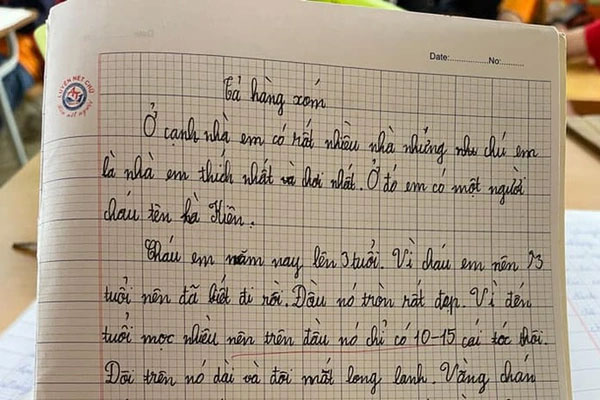 Date:..............No:..........
LUYỆN NÉT CHỮ
Tả hàng xóm
Ở cạnh nhà em có rất nhiều nhà nhưng nhà chú em
là nhà em thích nhất và chơi nhất. Ở đó em có một người
cháu tên là Hiên.
Cháu em năm nay lên 3 tuổi. Vì cháu em nên 3
tuổi nên đã biết đi rồi. Đầu nó tròn rất đẹp. Vì đến
tuổi mọc nhiều nên trên đầu nó chỉ có 10-15 cái tóc thôi.
Đôi trên nó dài và đôi mắt long lanh. Vầng chán